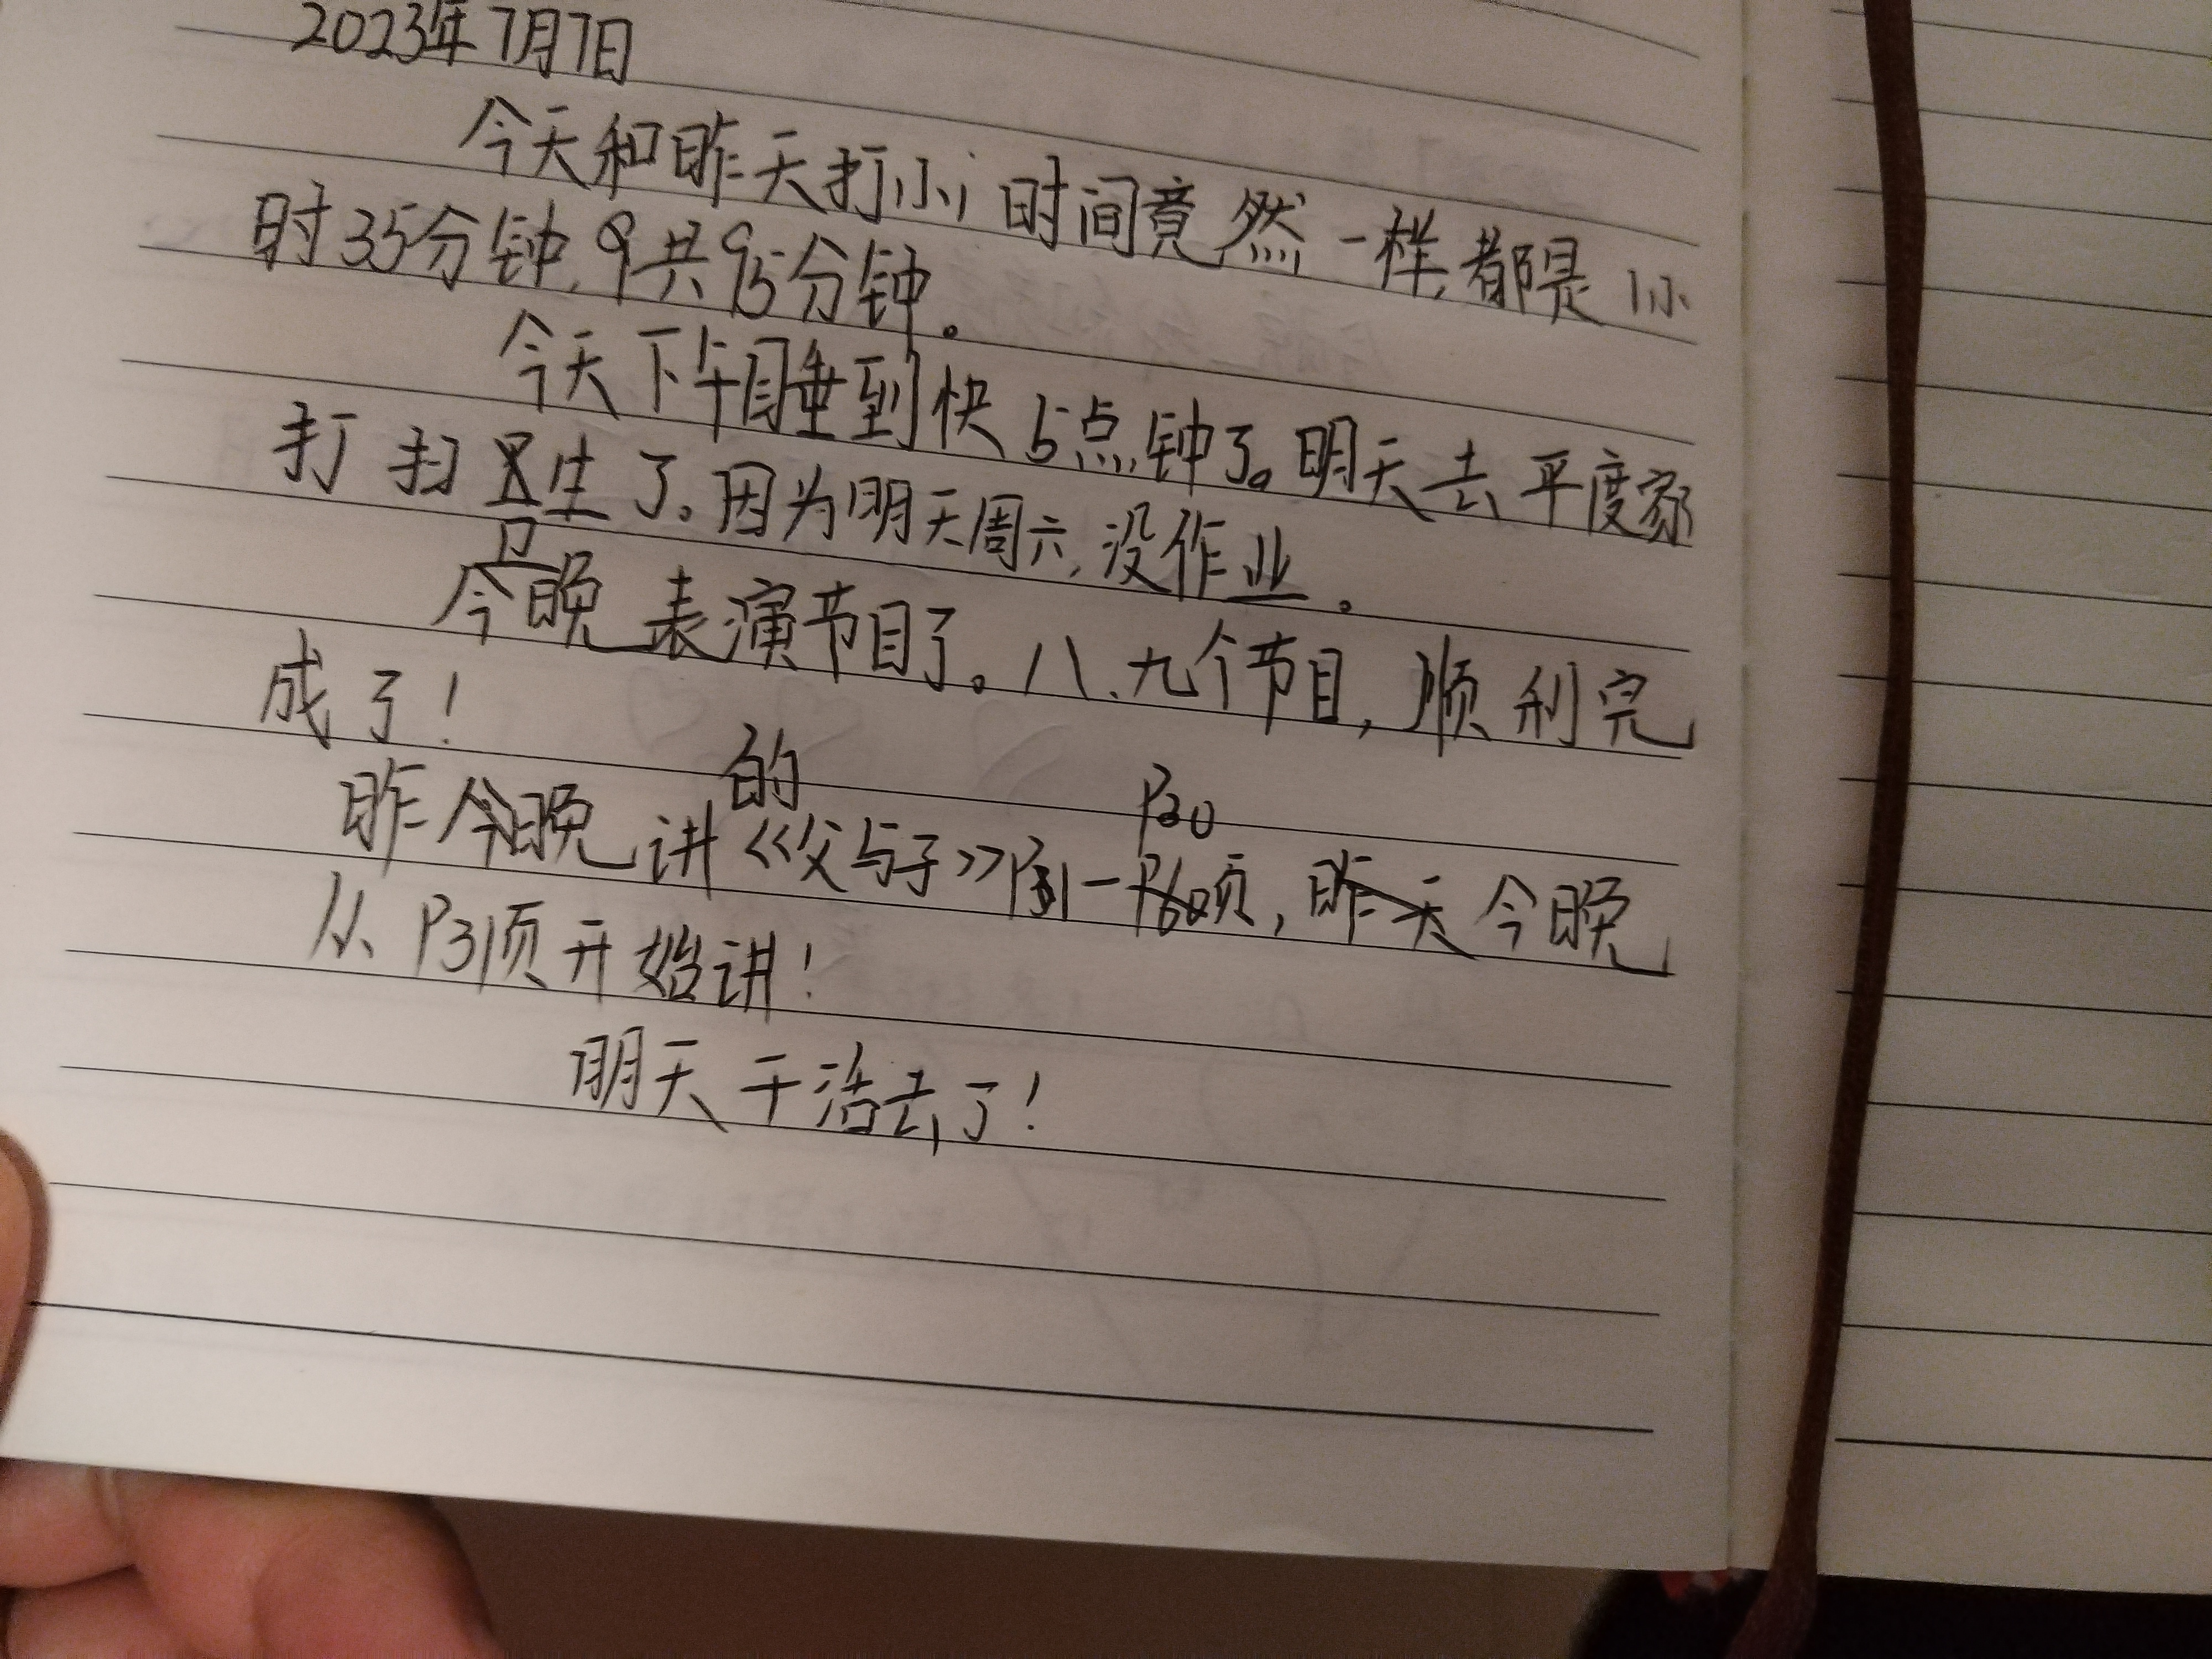 2023年7月7日
今天和昨天打小i时间竟然一样,都是1小
时35分钟,共95分钟。
今天下午睡到快5点钟了。明天去平度家
打扫卫生了。因为明天周六,没作业。
今晚表演节目了。八、九个节目,顺利完
成了!
的 P30
昨今晚讲《父与子》P1-页,昨天今晚
从P31页开始讲!
明天干活去了!